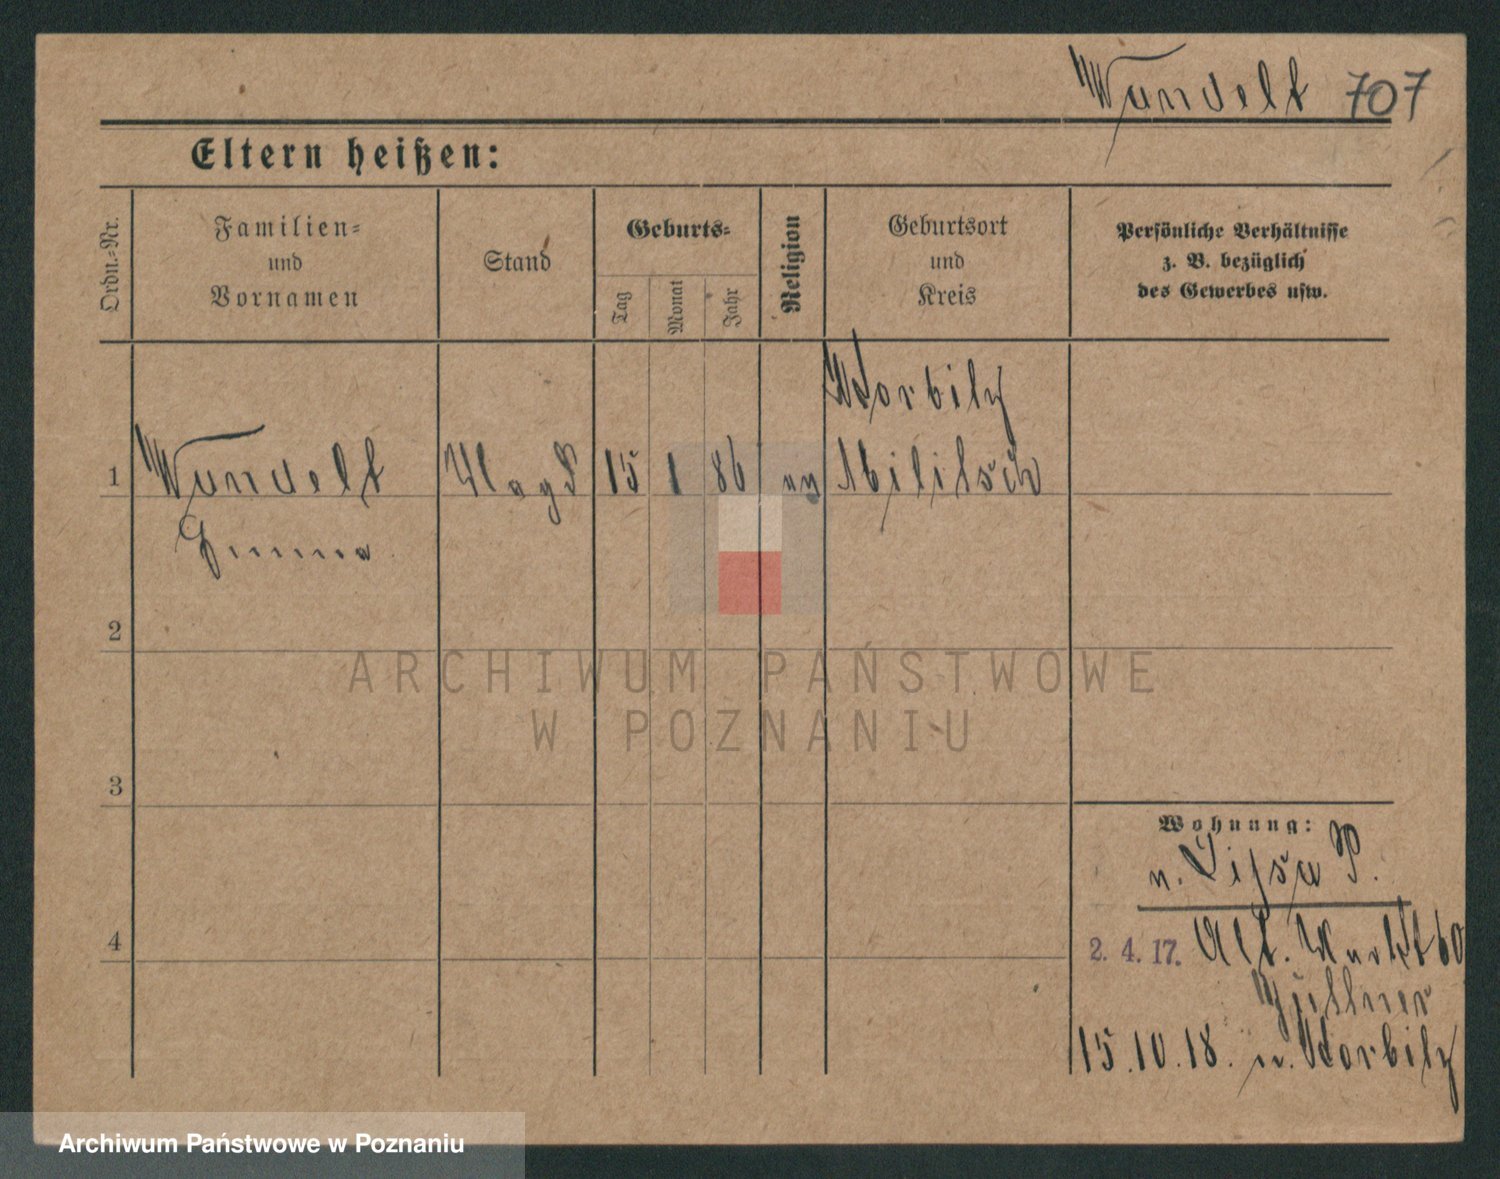 Wundelt 707
Eltern heißen:
Ordn.-Nr.
Familien-
und
Vornamen
Stand
Geburts-
Tag
Monat
Jahr
Religion
Geburtsort
und
Kreis
Persönliche Verhältnisse
z. B. bezüglich
des Gewerbes usw.
Worbitz
1 Wundelt Magd 15 1 86 Militsch
Emma
2
ARCHIWUM PAŃSTWOWE
W POZNANIU
3
Wohnung:
n. Lissa P.
4
2. 4. 17. Alt. Markt 60
15. 10. 18. n. Worbitz
Archiwum Państwowe w Poznaniu